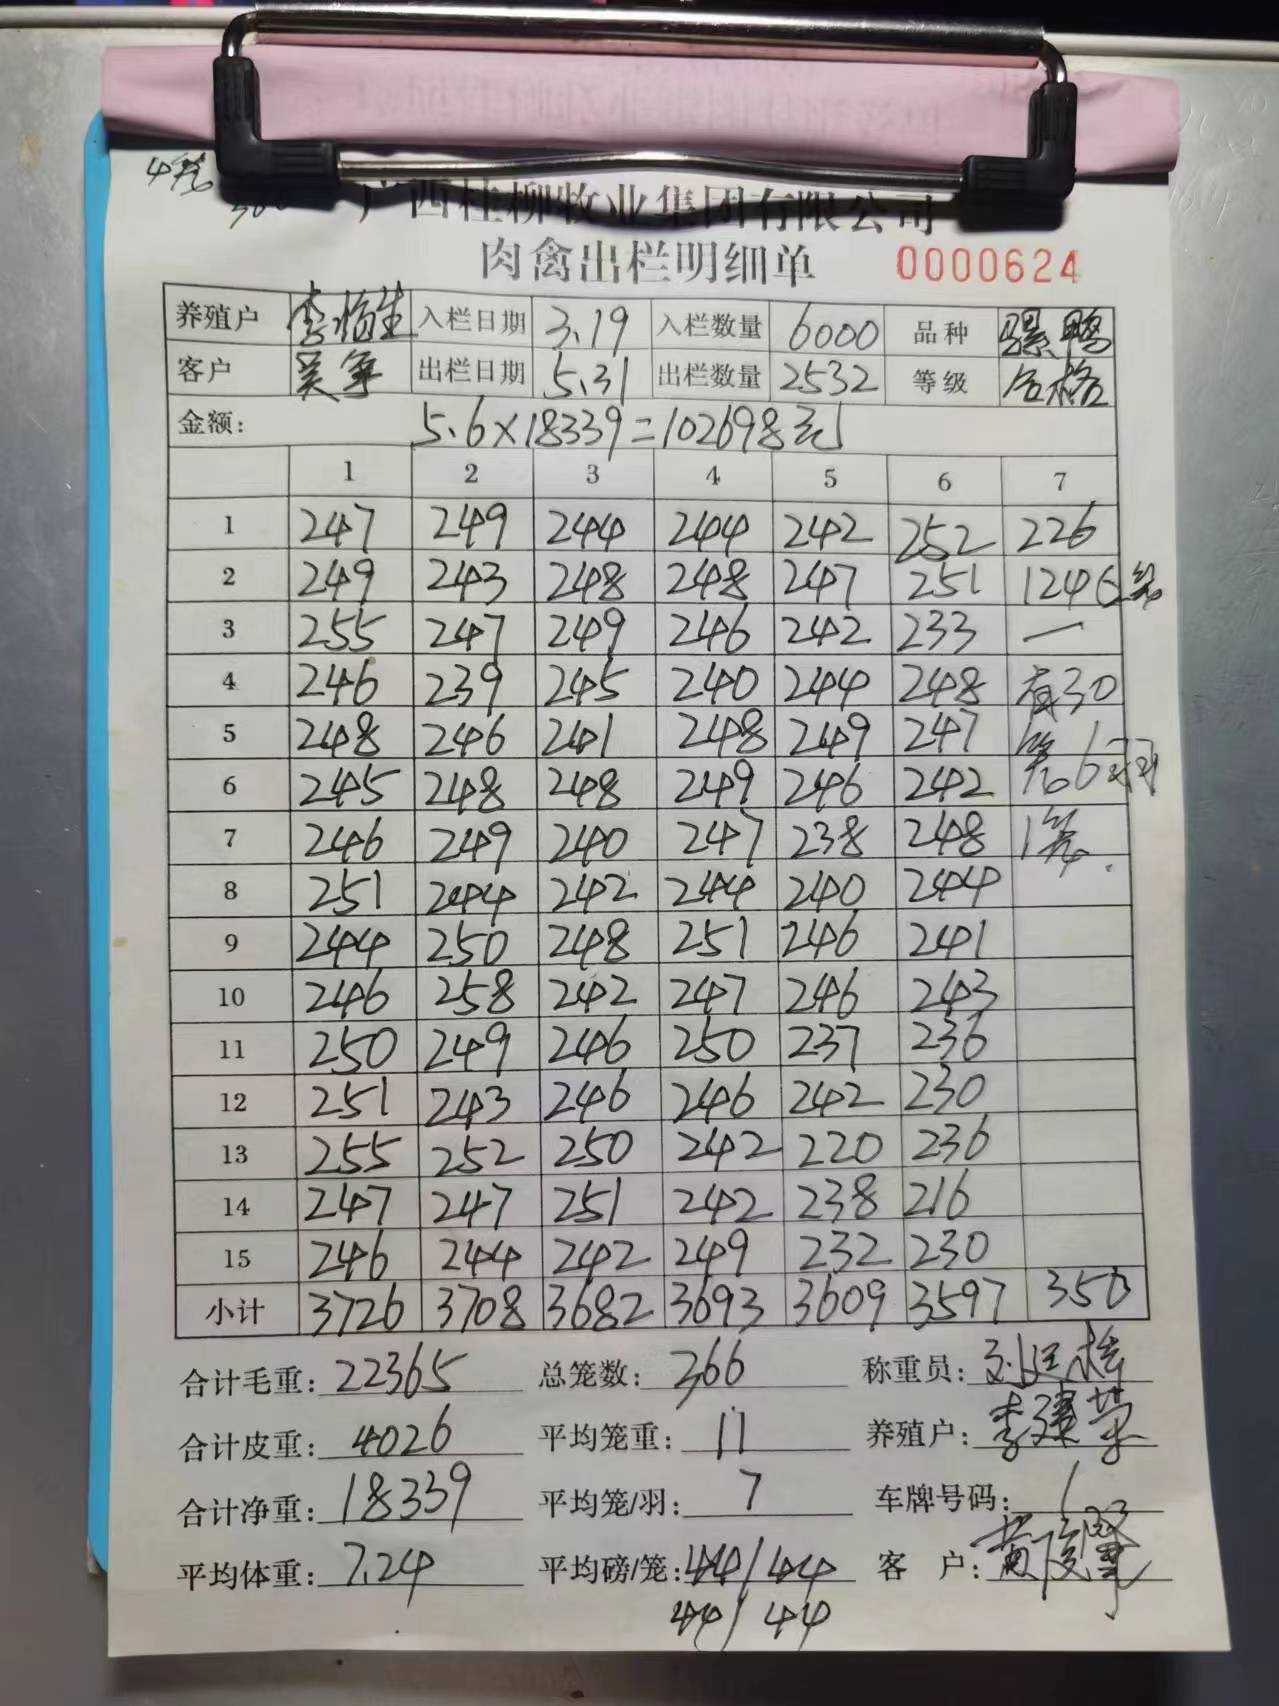 4笼
广西桂柳牧业集团有限公司
肉禽出栏明细单 0000624
养殖户 李 生 入栏日期 3.19 入栏数量 6000 品种 骡鸭
客户 吴军 出栏日期 5.31 出栏数量 2532 等级 合格
金额: 5.6×18339=102698元
1 2 3 4 5 6 7
1 247 249 244 244 242 252 226
2 249 243 248 248 247 251 124 6笼
3 255 247 249 246 242 233 一
4 246 239 245 240 244 248 有30
5 248 246 241 248 249 247 笼6羽
6 245 248 248 249 246 242
7 246 249 240 247 238 248 1笼.
8 251 244 242 244 240 244
9 244 250 248 251 246 241
10 246 258 242 247 246 243
11 250 249 246 250 237 236
12 251 243 246 246 242 230
13 255 252 250 242 220 236
14 247 247 251 242 238 216
15 246 244 242 249 232 230
小计 3726 3708 3682 3693 3609 3597 350
合计毛重: 22365 总笼数: 366 称重员:
合计皮重: 4026 平均笼重: 11 养殖户: 李建荣
合计净重: 18339 平均笼/羽: 7 车牌号码: 1
平均体重: 7.24 平均磅/笼: 44/44 客 户: 黄
44/44